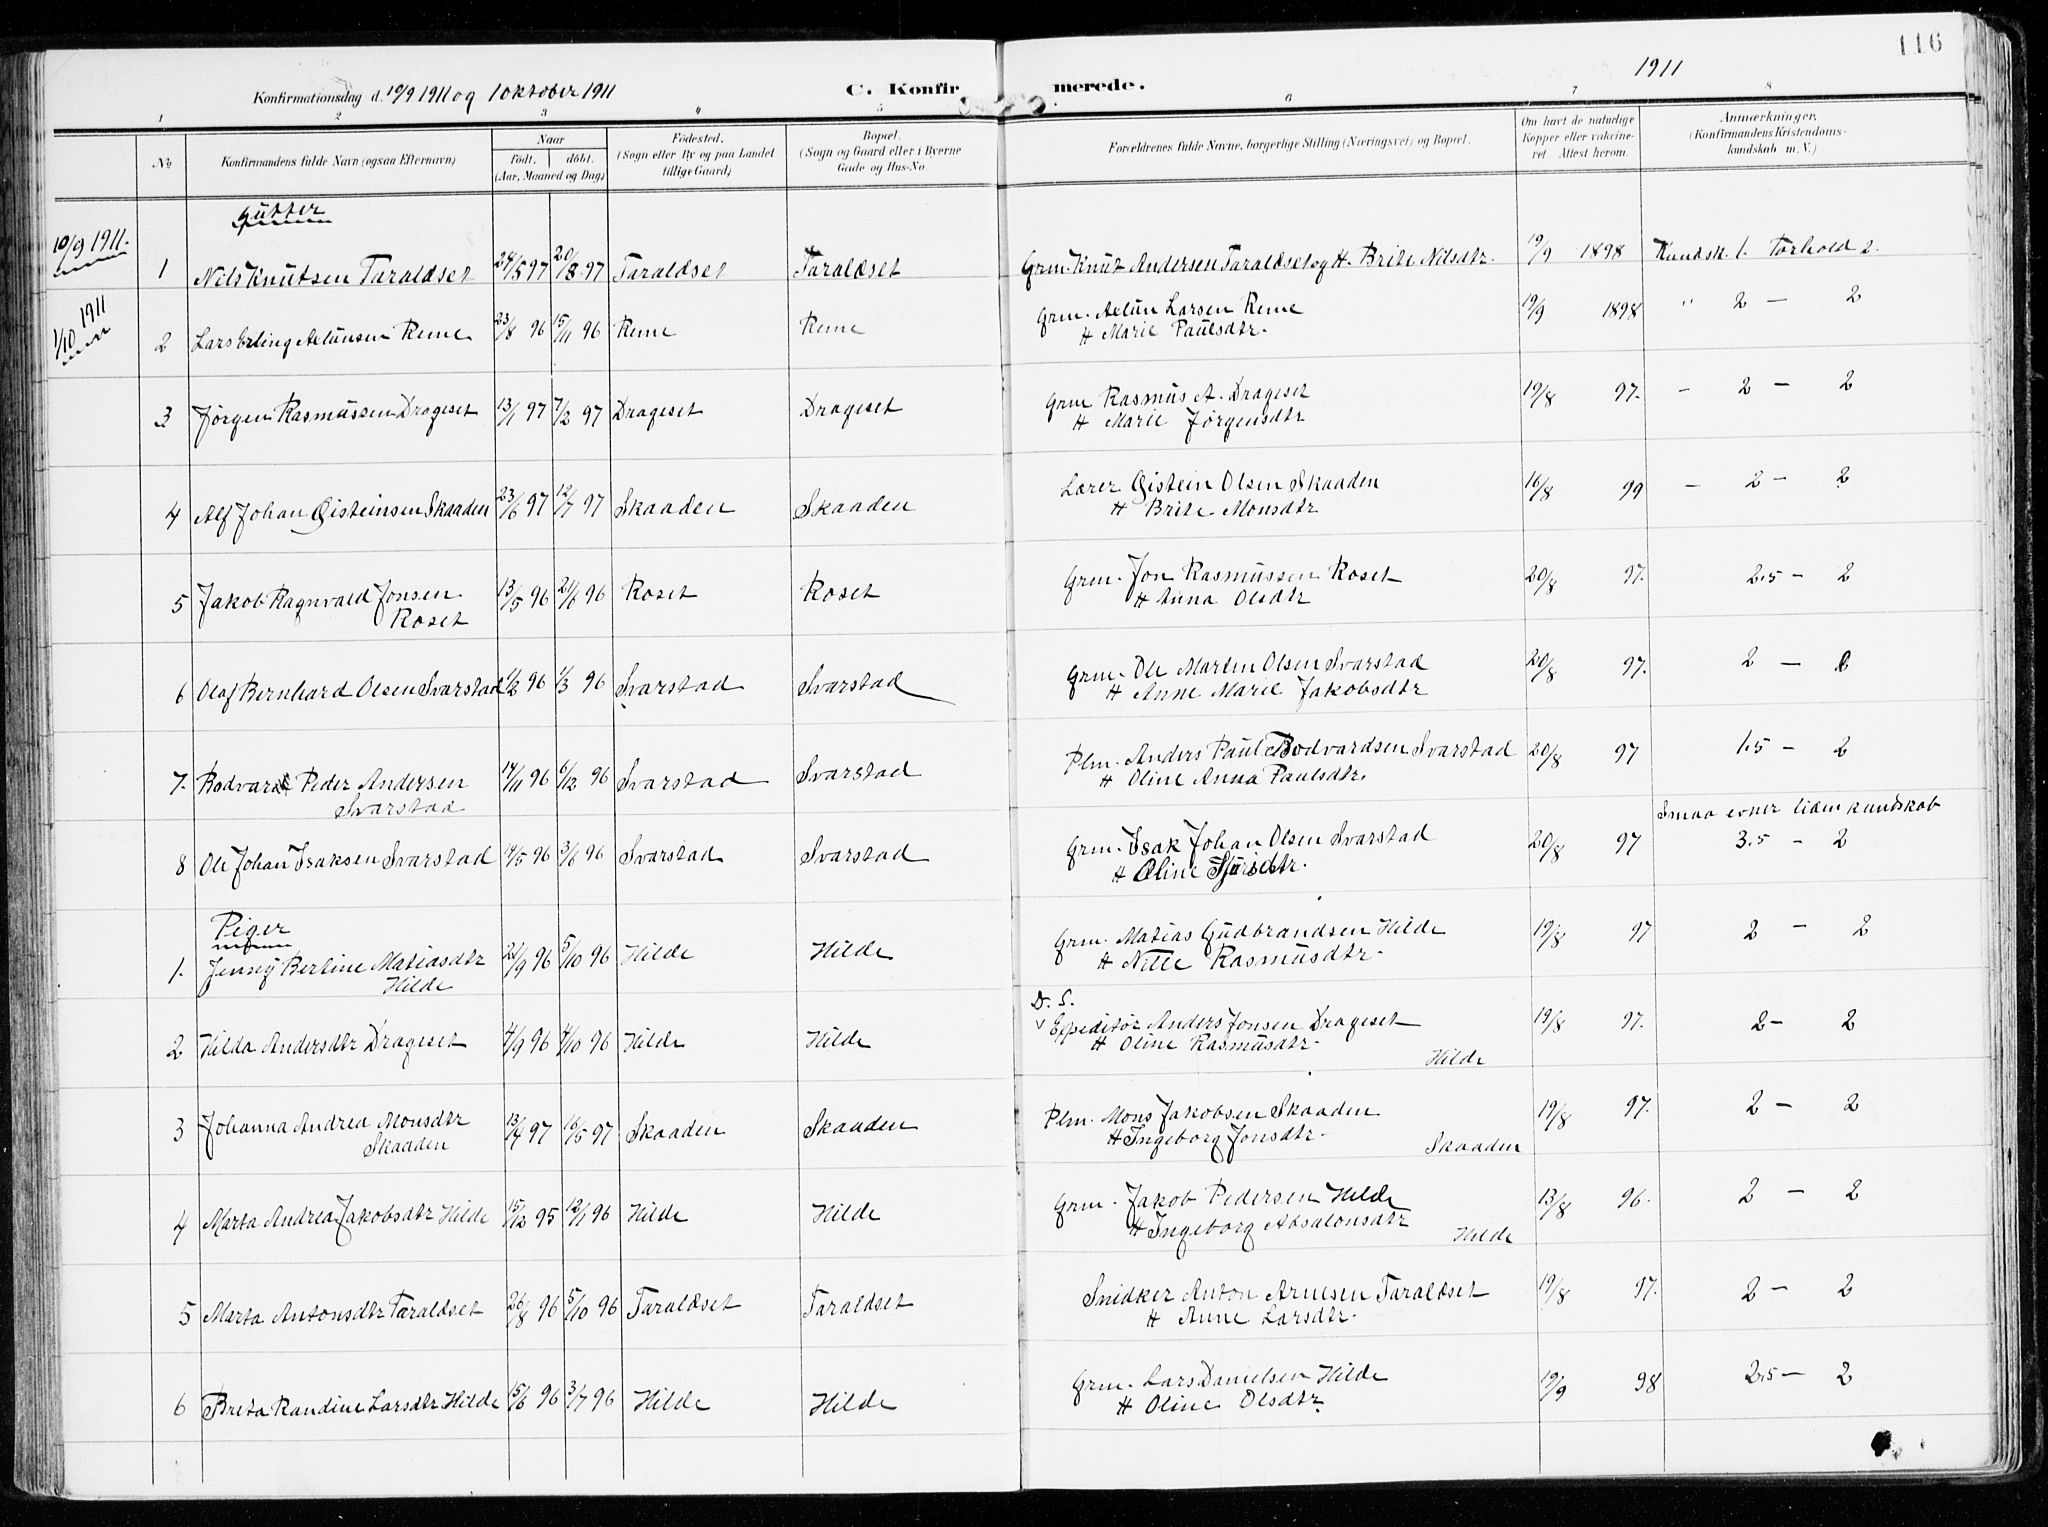 116
Konfirmationsdag d. 10/9 1911 og 1 oktober 1911 C. Konfirmerede. 1911
1 2 3 4 5 6 7 8
No. Konfirmandens fulde Navn (ogsaa Efternavn) Naar født. døbt. (Aar, Maaned og Dag) Fødested. (Sogn eller By og paa Landet tillige Gaard) Bopæl. (Sogn og Gaard eller i Byerne Gade og Hus-No. Forældrenes fulde Navne, borgerlige Stilling (Næringsvei) og Bopæl. Om havt de naturlige Kopper eller vakcineret. Attest herom. Anmærkninger. (Konfirmandens Kristendomskundskab m. V.)
Gutter
10/9 1911.
1 Nils Knutsen Taraldset 24/5 97 20/8 97 Taraldset Taraldset Grm. Knut Andersen Taraldset og H. Brite Nilsdtr. 19/9 1898 Kundsk. 1. Forhold 2.
1/10 1911
2 Lars Erling Aelunsen Reme 23/8 96 15/11 96 Reme Reme Grm. Aelun Larsen Reme 19/9 1898 " 2 — 2
H Marie Paulsdtr.
3 Jørgen Rasmussen Drageset 13/1 97 7/2 97 Drageset Drageset Grm Rasmus A. Drageset 19/8 97. - 2 — 2
H Marie Jørgensdtr
4 Alf Johan Øisteinsen Skaaden 23/6 97 12/7 97 Skaaden Skaaden Lærer Øistein Olsen Skaaden 16/8 99 - 2 — 2
H Brite Monsdtr
5 Jakob Ragnvald Jonsen 13/5 96 21/6 96 Roset Roset Grm. Jon Rasmussen Roset 20/8 97. 2.5 — 2
Roset H Anna Olsdtr
6 Olaf Bernhard Olsen Svarstad 11/2 96 1/3 96 Svarstad Svarstad Grm. Ole Martin Olsen Svarstad 20/8 97. 2 — 2
H Anne Marie Jakobsdtr
7. Bodvard Peder Andersen 14/11 96 6/12 96 Svarstad Svarstad Plm. Anders Paul Bodvardsen Svarstad 20/8 97 1.5 — 2
Svarstad H Oline Anna Paulsdtr.
Smaa evner liden kundskab
8 Ole Johan Isaksen Svarstad 14/5 96 3/6 96 Svarstad Svarstad Grm. Isak Johan Olsen Svarstad 20/8 97 3.5 - 2
H Oline
Piger
1. Jenny Bertine Matiasdtr 21/9 96 5/10 96 Hilde Hilde Grm. Matias Gudbrandsen Hilde 19/8 97 2 — 2
Hilde H Nille Rasmusdtr.
D. S.
2 Hilda Andersdtr Drageset 4/9 96 4/10 96 Hilde Hilde v Expeditør Anders Jonsen Drageset 19/8 97. 2 — 2
H Oline Rasmusdtr. Hilde
3 Johanna Andrea Monsdtr 13/4 97 16/5 97 Skaaden Skaaden Plm. Mons Jakobsen Skaaden 19/8 97. 2 — 2
Skaaden H Ingeborg Jonsdtr. Skaaden
4 Marta Andrea Jakobsdtr Hilde 15/12 95 12/1 96 Hilde Hilde Grm. Jakob Pedersen Hilde 13/8 96. 2 — 2
H Ingeborg Absalonsdtr Hilde
5 Marta Antonsdtr Taraldset 26/8 96 5/10 96 Taraldset Taraldset Snidker Anton Arnesen Taraldset 19/8 97. 2 — 2
H Anne Larsdtr.
6 Brita Randine Larsdtr Hilde 15/6 96 3/7 96 Hilde Hilde Grm. Lars Danielsen Hilde 19/9 98 2.5 — 2
H Oline Olsdtr.